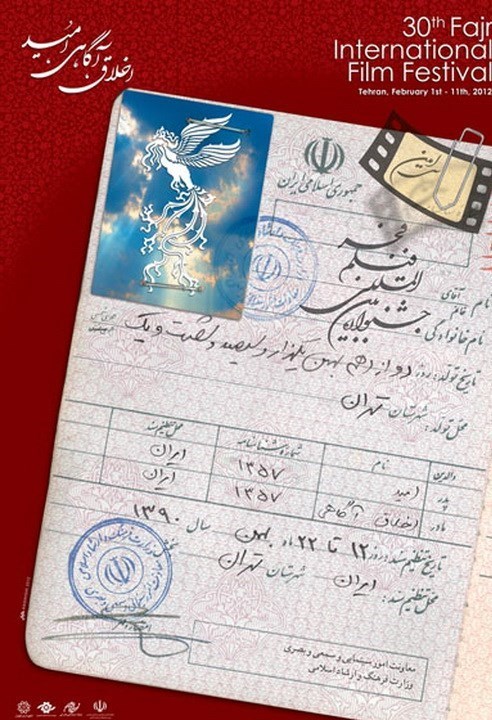 30th Fajr
International
Film Festival
Tehran, February 1st - 11th, 2012
اخلاق آگاهی امید
جمهوری اسلامی ایران
آقای
نام خانم
جشنواره بین المللی فیلم فجر
نام خانوادگی:
تاریخ تولد: روز دوازدهم بهمن یکهزار و سیصد و شصت و یک
محل تولد: شهرستان تهران
والدین نام شماره شناسنامه محل تنظیم سند
پدر امید ۱۳۵۷ ایران
مادر اخلاق آگاهی ۱۳۵۷ ایران
تاریخ تنظیم سند: روز ۱۲ تا ۲۲ ماه بهمن سال ۱۳۹۰
محل تنظیم سند: ایران شهرستان تهران
معاونت امور سینمایی و سمعی و بصری
وزارت فرهنگ و ارشاد اسلامی